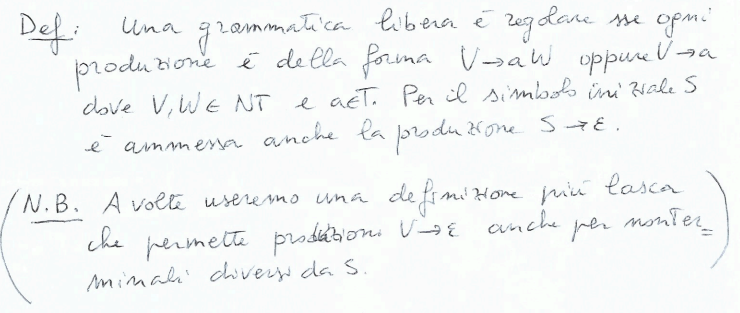 Def: Una grammatica libera è regolare sse ogni
produzione è della forma V→aW oppure V→a
dove V,W ∈ NT e a∈T. Per il simbolo iniziale S
è ammessa anche la produzione S→ε.
(N.B. A volte useremo una definizione più lasca
che permette produzioni V→ε anche per nonter=
minali diversi da S.)